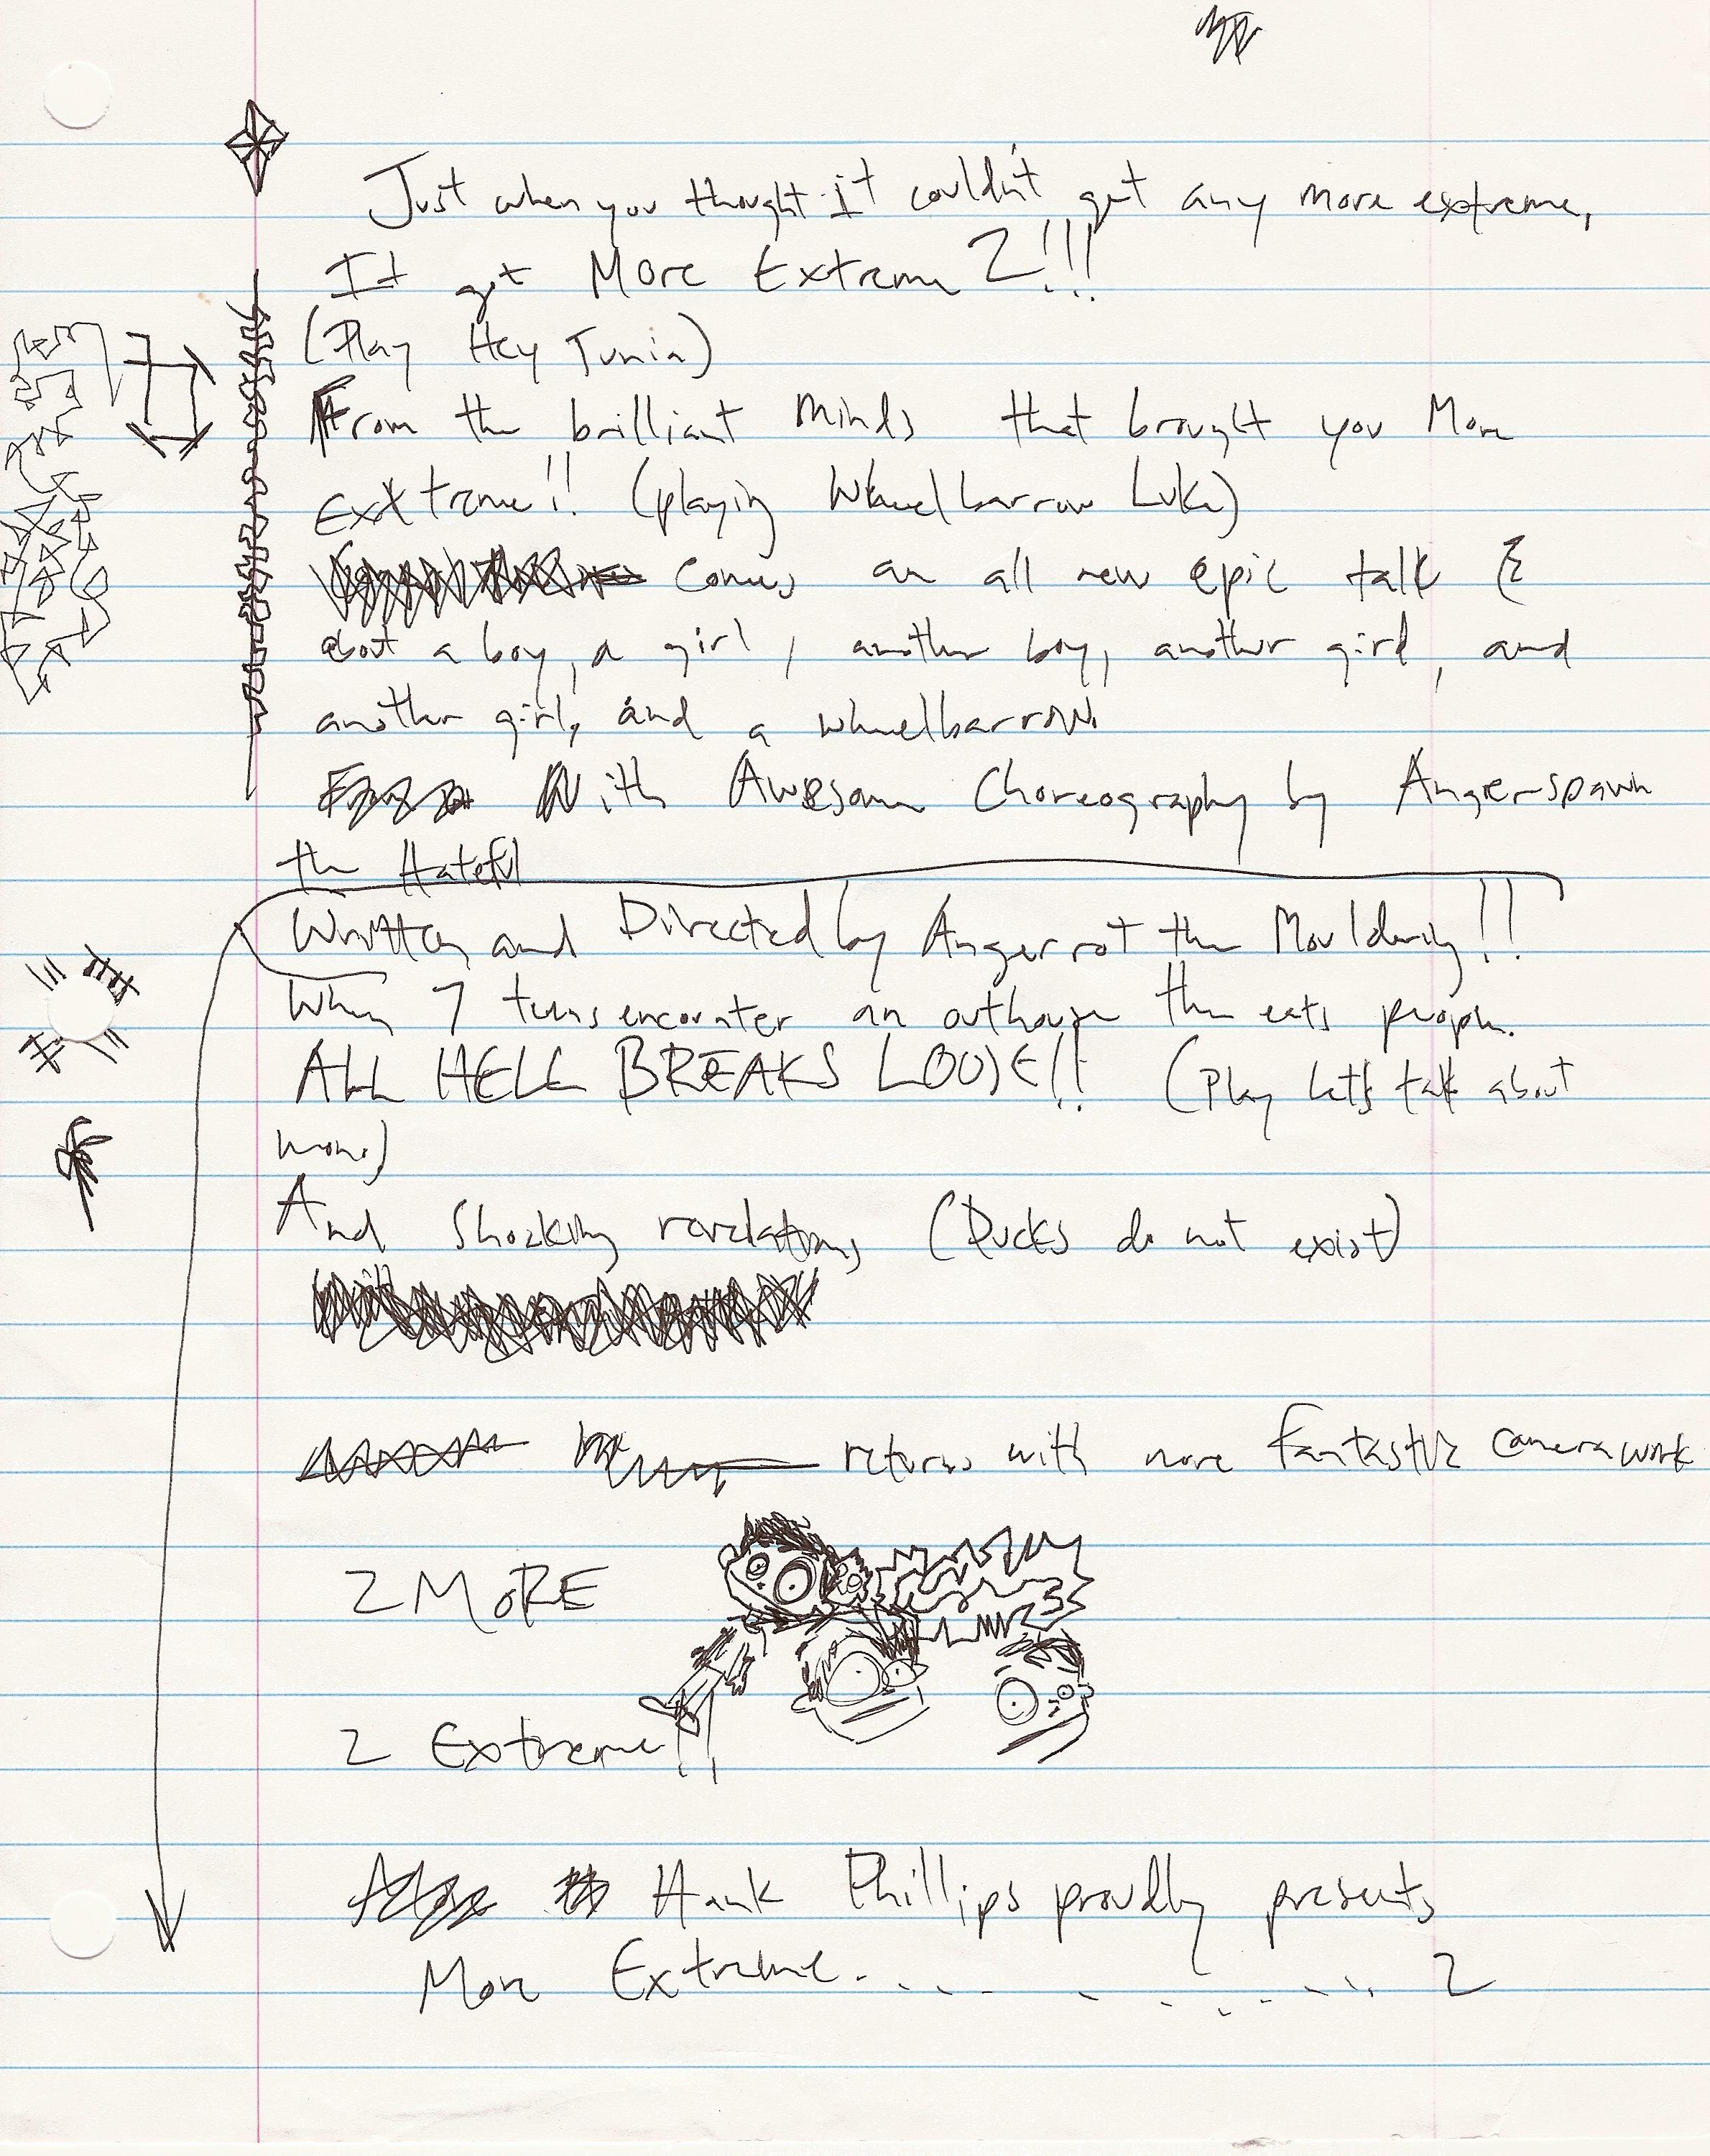 Just when you thought it couldn't get any more extreme,
It got More Extreme 2!!!
(Play Hey Junia)
From the brilliant minds that brought you More
Extreme!! (playing Wheelbarrow Luke)
comes an all new epic talk
about a boy, a girl, another boy, another girl, and
another girl, and a wheelbarrow
With Awesome Choreography by Angerspawn
the Hateful
Written and Directed by Angerrot the Mouldering!!
When 7 teens encounter an outhouse the eats people.
ALL HELL BREAKS LOOSE!! (Play let's talk about
And Shocking revelations (Ducks do not exist)
returns with more fantastic camera work
2 MORE
2 Extreme!!
Hank Phillips proudly presents
More Extreme............ 2